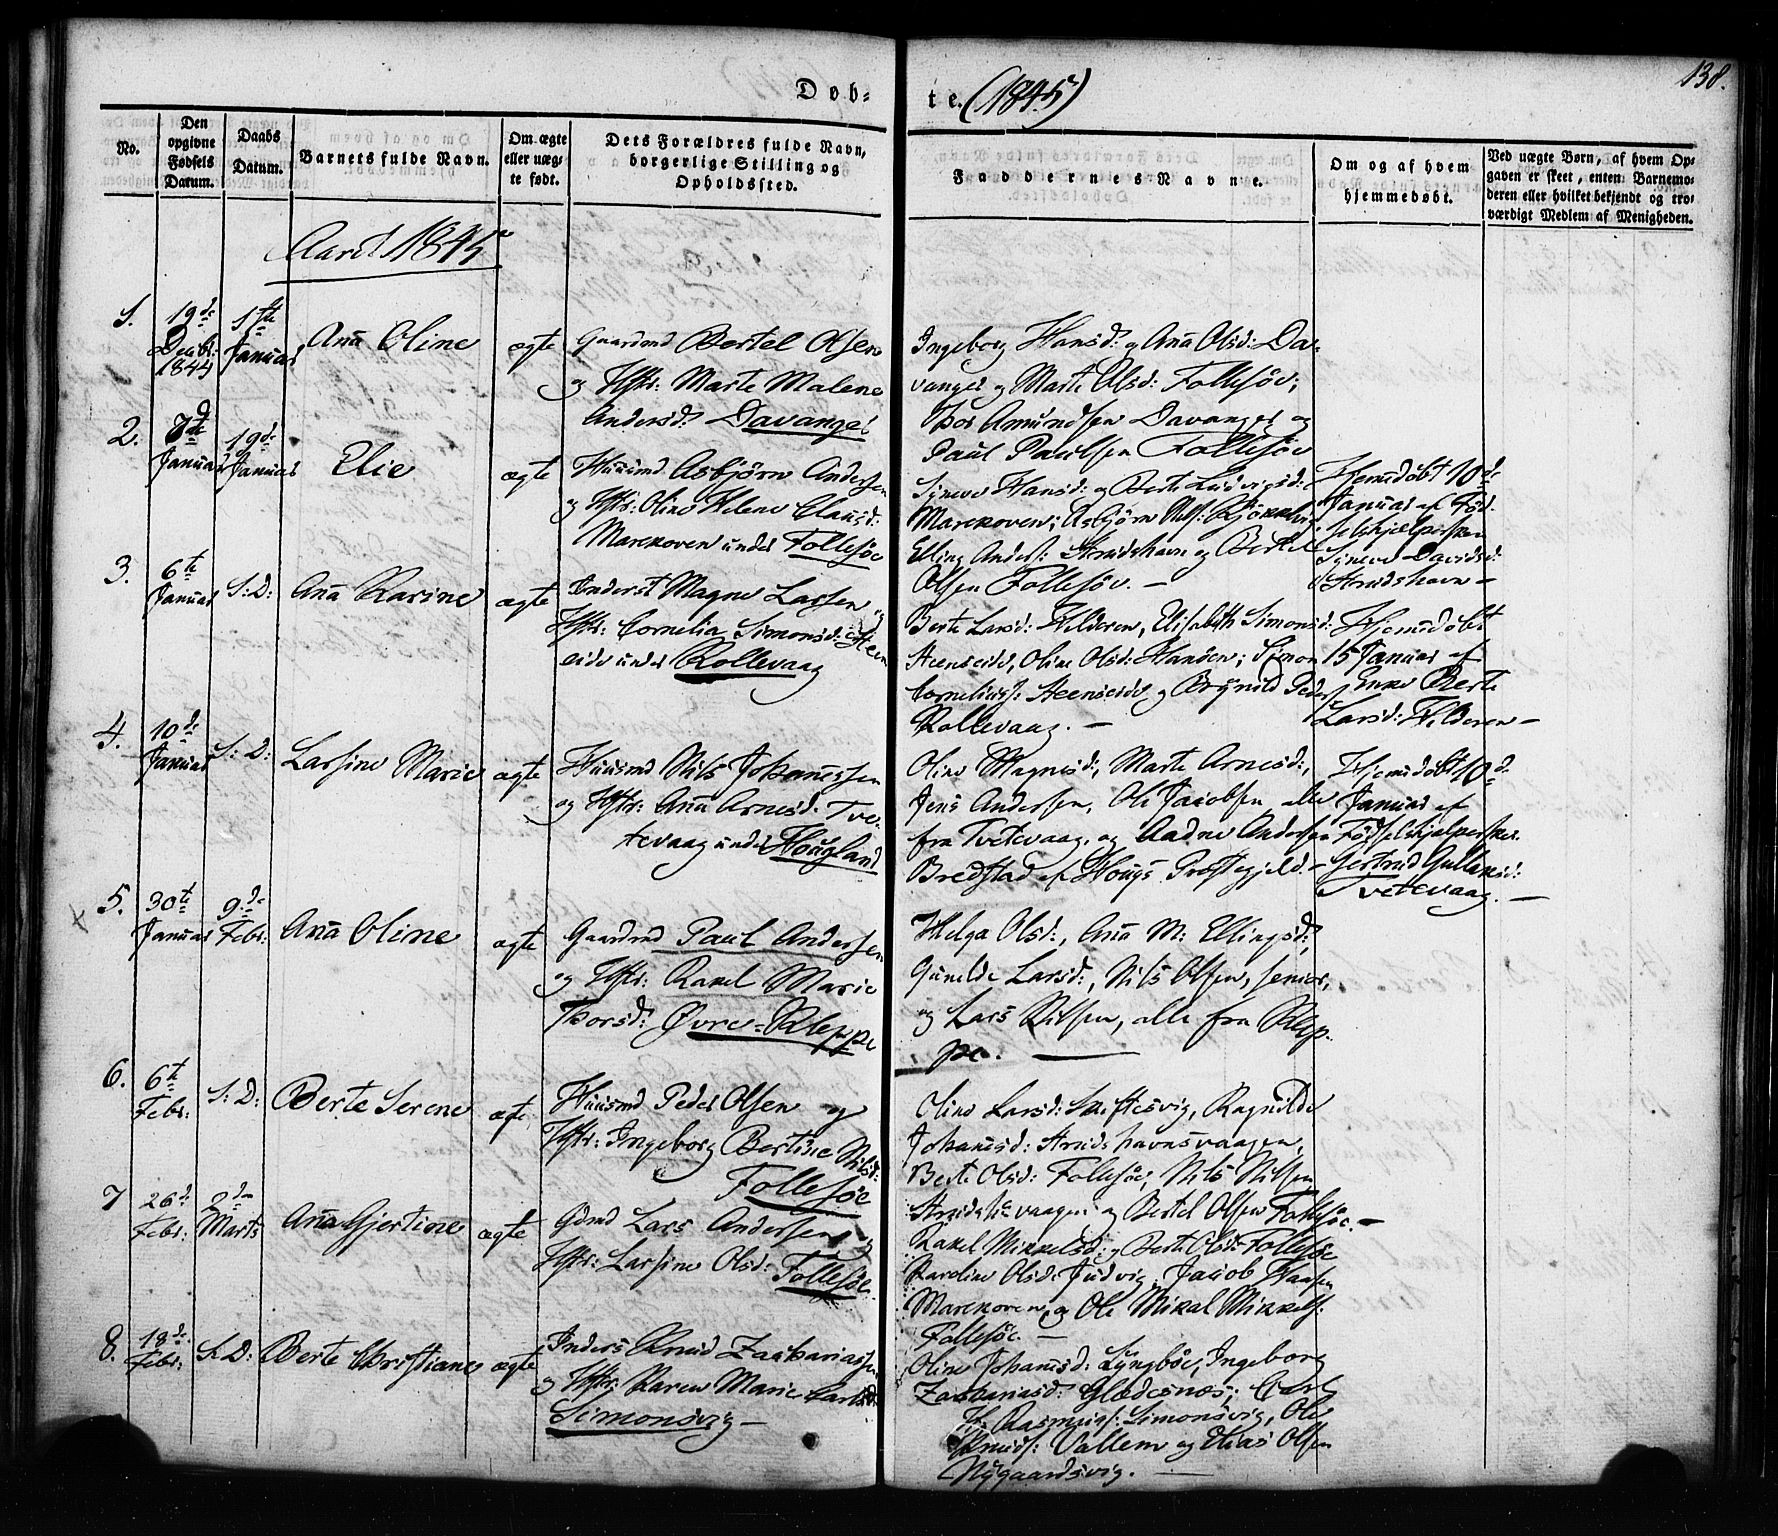 Døb-
te. (1845)
138.
No.
Den
opgivne
Fødsels
Datum.
Daabs
Datum.
Barnets fulde Navn.
Om ægte
eller uæg-
te født.
Dets Forældres fulde Navn,
borgerlige Stilling og
Opholdssted.
Faddernes Navne.
Om og af hvem
hjemmedøbt.
Ved uægte Børn, af hvem Op-
gaven er skeet, enten Barnemo-
deren eller hvilket bekjendt og tro-
værdigt Medlem af Menigheden.
Aaret 1845
1.
19de
Decbr:
1844
1ste
Januar
Ana Oline
ægte
Gaardmd Bertel Olsen
og Hstr: Marte Malene
Andersd: Davanger
Ingeborg Hansd: og Ana Olsd: Da-
vanger og Marte Olsd: Follesöe;
Thor Amundsen Davanger og
Paul Paulsen Follesöe
2.
7de
Januar
19de
Januar
Elie
ægte
Huusmd Asbjørn Andersen
og Hstr: Oline Helene Clausd:
Marekoven under Follesöe
Syneve Hansd: og Berte Ludvigsd:
Marekoven; Asbjørn Nils:
Elling Anders: Strudshavn og Bertel
Olsen Follesöe. —
Hjemedøbt 10de
Januar af Fød-
selshjelpersken
Syneve Davidsd:
Strudshavn —
3.
6te
Januar
S: D:
Ana Karine
ægte
Inderst Magne Larsen og
Hstr: Cornelia Simonsd: Steen-
eide under Rollevaag
Berte Larsd: Hilderen, Elisabeth Simonsd:
Steenseide, Oline Olsd: Handen; Simon
Corneliuss: Steenseide og Brynild Peders:
Rollevaag. —
Hjemedøbt
15 Januar af
Enke Berte
Larsd: Hilderen —
4.
10de
Januar
S: D:
Larsine Marie
ægte
Huusmd Nils Johanessen
og Hstr: Ana Arnesd: Tve-
tevaag under Hougland
Oline Magnesd:, Marte Arnesd:,
Jens Andersen, Ole Jacobsen alle
fra Tvetevaag, og Aadne Andersen
Bredstad af Hougs Præstegjeld.
Hjemedøbt 10de
Januar af
Fødselshjelpersken
Gertrud Gullaksd:
Tvetevaag. —
5.
30te
Januar
9de
Febr:
Ana Oline
ægte
Gaardmd Paul Andersen
og Hstr: Rakel Marie
Thorsd: Øvre-Kleppe
Helga Olsd:, Ana M: Ellingsd:,
Gunilde Larsd:, Nils Olsen, senior,
og Lars Nilsen, alle fra Klep-
pe. —
6.
6te
Febr:
S: D:
Berte Serene
ægte
Huusmd Peder Olsen og
Hstr: Ingeborg Bertine Nilsd:
Follesöe
Oline Larsd: Skiftesvig, Ragnilde
Johanesd: Strudshavnsvaagen,
Berte Olsd: Follesöe, Nils Nilsen
Strudshavaagen og Bertel Olsen Follesöe. —
7
26de
Febr:
2den
Marts
Ana Gjertine
ægte
Gdmd Lars Andersen og
Hstr: Larsine Olsd: Follesöe.
Rakel Mikkelsd: og Berte Olsd: Follesöe
Karoline Olsd: Judvig, Jacob Hansen
Marekoven og Ole Mikal Mikkels:
Follesöe. —
8.
18de
Febr:
S: D:
Berte Christiane
ægte
Inders Knud Zachariassen
og Hstr: Karen Marie Larsd:
Simonsvig —
Oline Johanesd: Lyngböe, Ingeborg
Zachariasd: Gledesnæs; Carl
Rasmus: Simonsvig, Ole
Knuds: Vallem og Elias Olsen
Nygaardsvig. —